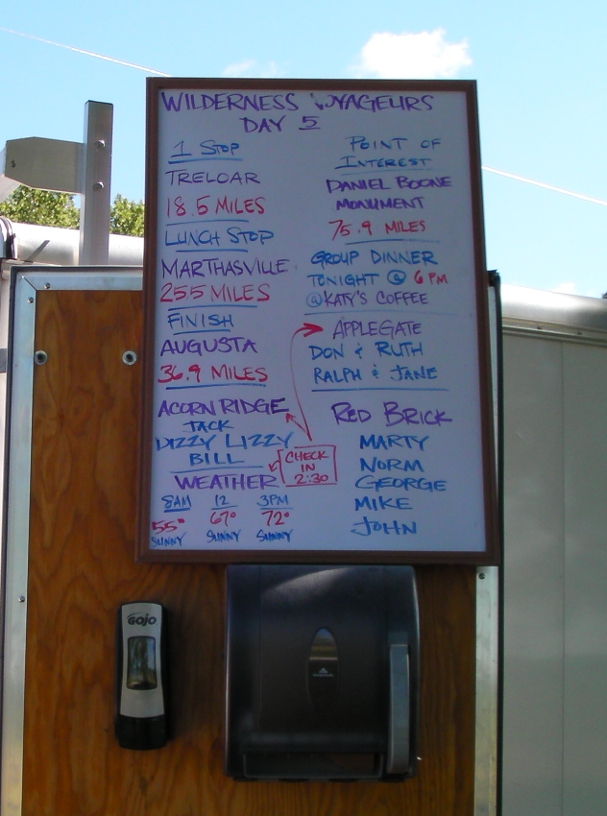 WILDERNESS VOYAGEURS
DAY 5
1 STOP
TRELOAR
18.5 MILES
LUNCH STOP
MARTHASVILLE
25.5 MILES
FINISH
AUGUSTA
36.9 MILES
ACORN RIDGE
JACK
DIZZY LIZZY
BILL
WEATHER
8AM 12 3PM
55° 67° 72°
SUNNY SUNNY SUNNY
CHECK
IN
2:30
POINT OF
INTEREST
DANIEL BOONE
MONUMENT
75.9 MILES
GROUP DINNER
TONIGHT @ 6 PM
@KATY'S COFFEE
APPLEGATE
DON & RUTH
RALPH & JANE
RED BRICK
MARTY
NORM
GEORGE
MIKE
JOHN
GOJO